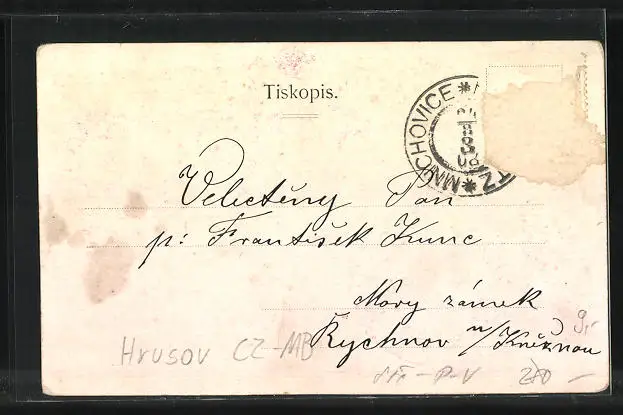 Tiskopis.
MNICHOVICE
TZ
Veletěný Pan
p: František Kunc
Nový zámek
Rychnov n/Kněžnou
Hrusov CZ-MB